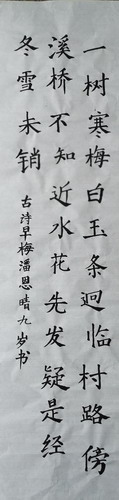 一树寒梅白玉条迥临村路傍
溪桥不知近水花先发疑是经
冬雪未销
古诗早梅潘恩晴九岁书